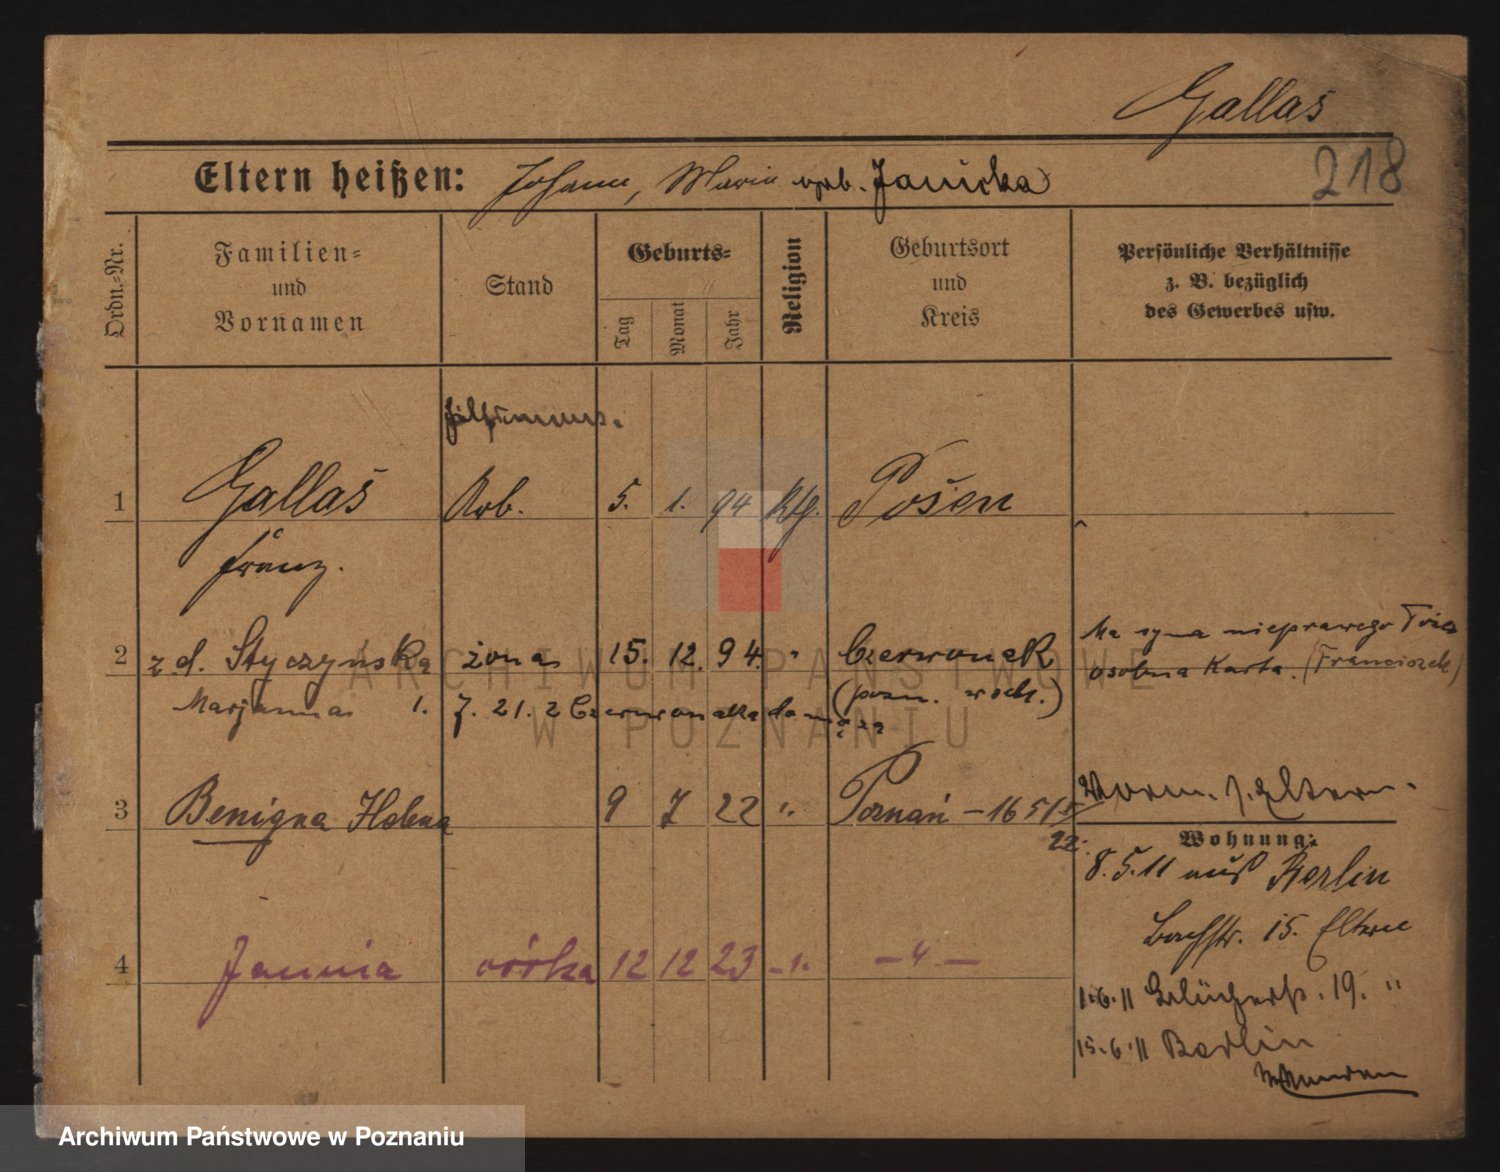 Gallas
218
Eltern heißen: Johann, Maria geb. Janicka
Ordn.-Nr.
Familien- und Vornamen
Stand
Geburts-
Tag
Monat
Jahr
Religion
Geburtsort und Kreis
Persönliche Verhältnisse
z. B. bezüglich
des Gewerbes usw.
1 Gallas Arb. 5. 1. 94 Kth. Posen
Franz.
2 z d. Styczyńska żona 15. 12. 94. " Czerwonak
Marjanna 1. 7. 21. z Czerwonaka
(pozn. wsch.)
Ma syna nieprawego
osobna Karta. (Franciszek)
3 Benigna Helena 9 7 22 ". Poznań - 16 5/5
22.
Vorm. s. Eltern.
Wohnung:
8. 5. 11 aus Berlin
Bachstr. 15. Eltern
1. 6. 11 Blücherstr. 19. "
15. 6. 11 Berlin
4 Janina córka 12 12 23 - ". - " -
ARCHIWUM PAŃSTWOWE
W POZNANIU
Archiwum Państwowe w Poznaniu